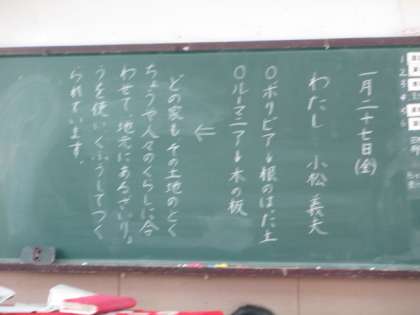 一月二十七日(金)
わたし 小松義夫
○ボリビア→根のはった土
○ルーマニア→木の板
←
どの家もその土地のとく
ちょうや人々のくらしに合
わせて、地元にあるざいりょ
うを使い、くふうしてつく
られています。